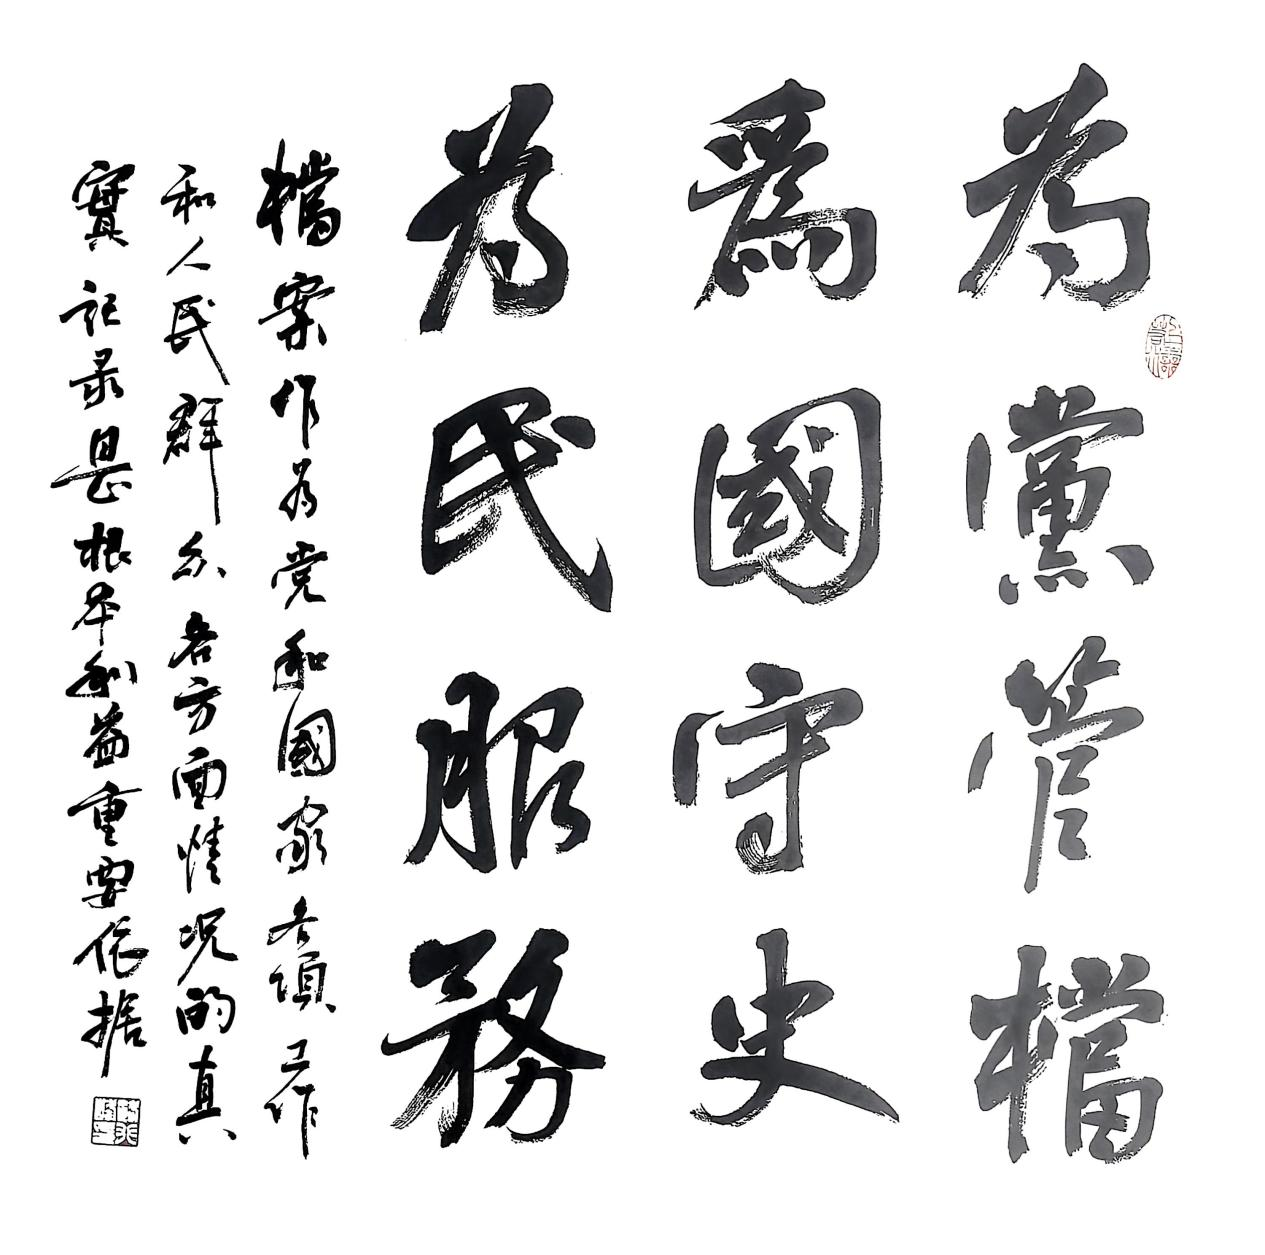 為黨管檔
爲國守史
為民服務
檔案作为党和國家各項工作
和人民群众各方面情况的真
實記录是根本利益重要依据